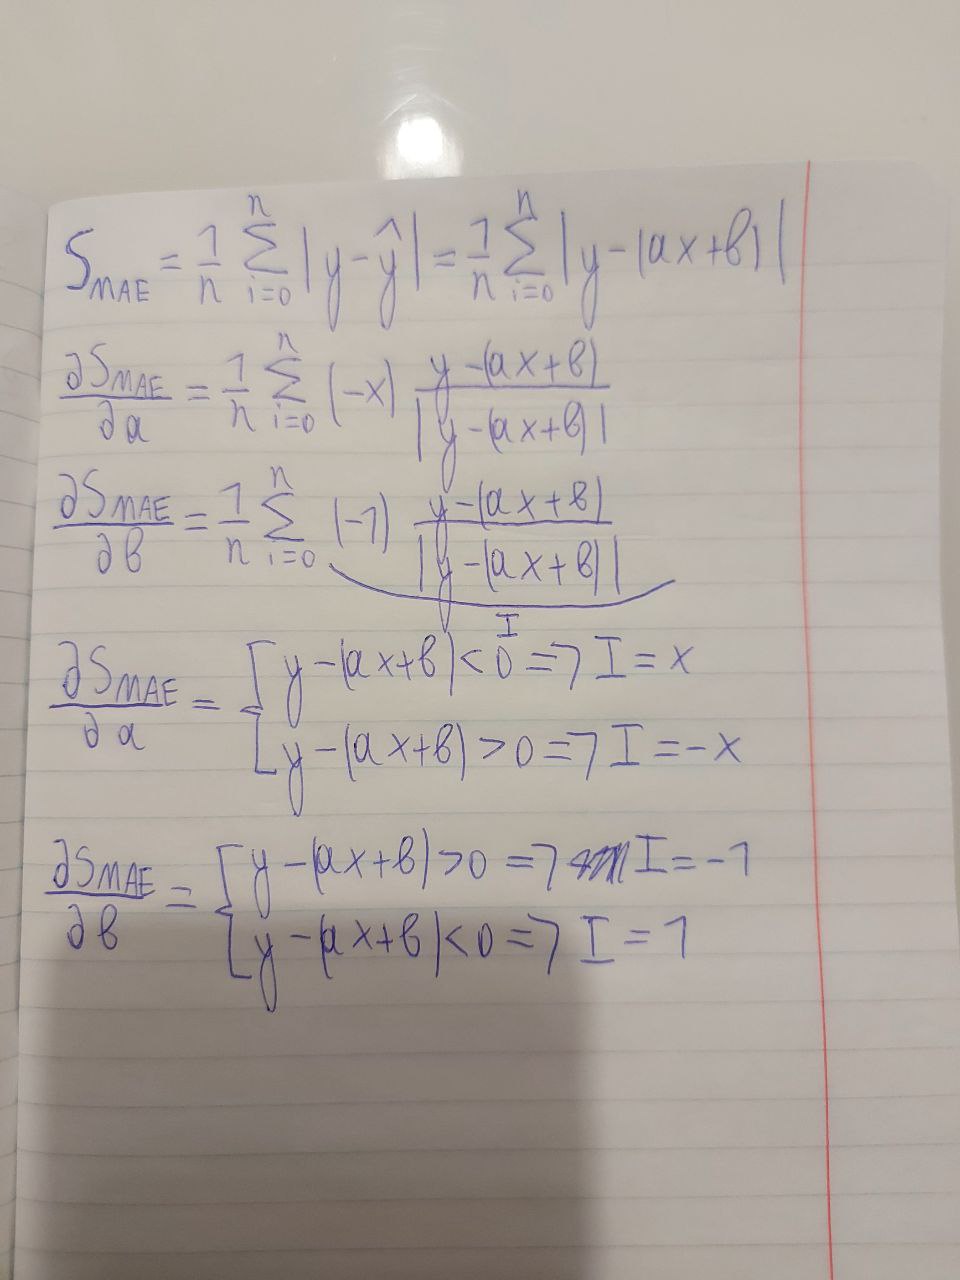 S_MAE = 1/n Σ_{i=0}^{n} |y-ŷ| = 1/n Σ_{i=0}^{n} |y-(ax+в)|
∂S_MAE/∂a = 1/n Σ_{i=0}^{n} (-x) (y-(ax+в))/|y-(ax+в)|
∂S_MAE/∂в = 1/n Σ_{i=0}^{n} (-1) (y-(ax+в))/|y-(ax+в)|
I
∂S_MAE/∂a = { y-(ax+в)<0 => I = x
y-(ax+в)>0 => I = -x
∂S_MAE/∂в = { y-(ax+в)>0 => I = -1
y-(ax+в)<0 => I = 1